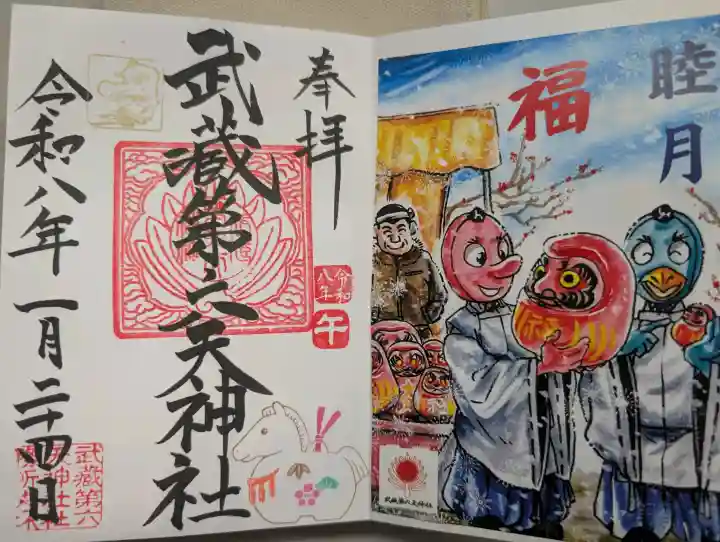 奉拝
武蔵第六天神社
令和八年一月二十四日
令和
八年
午
武蔵第六
天神社社
睦月
福
武蔵第六天神社